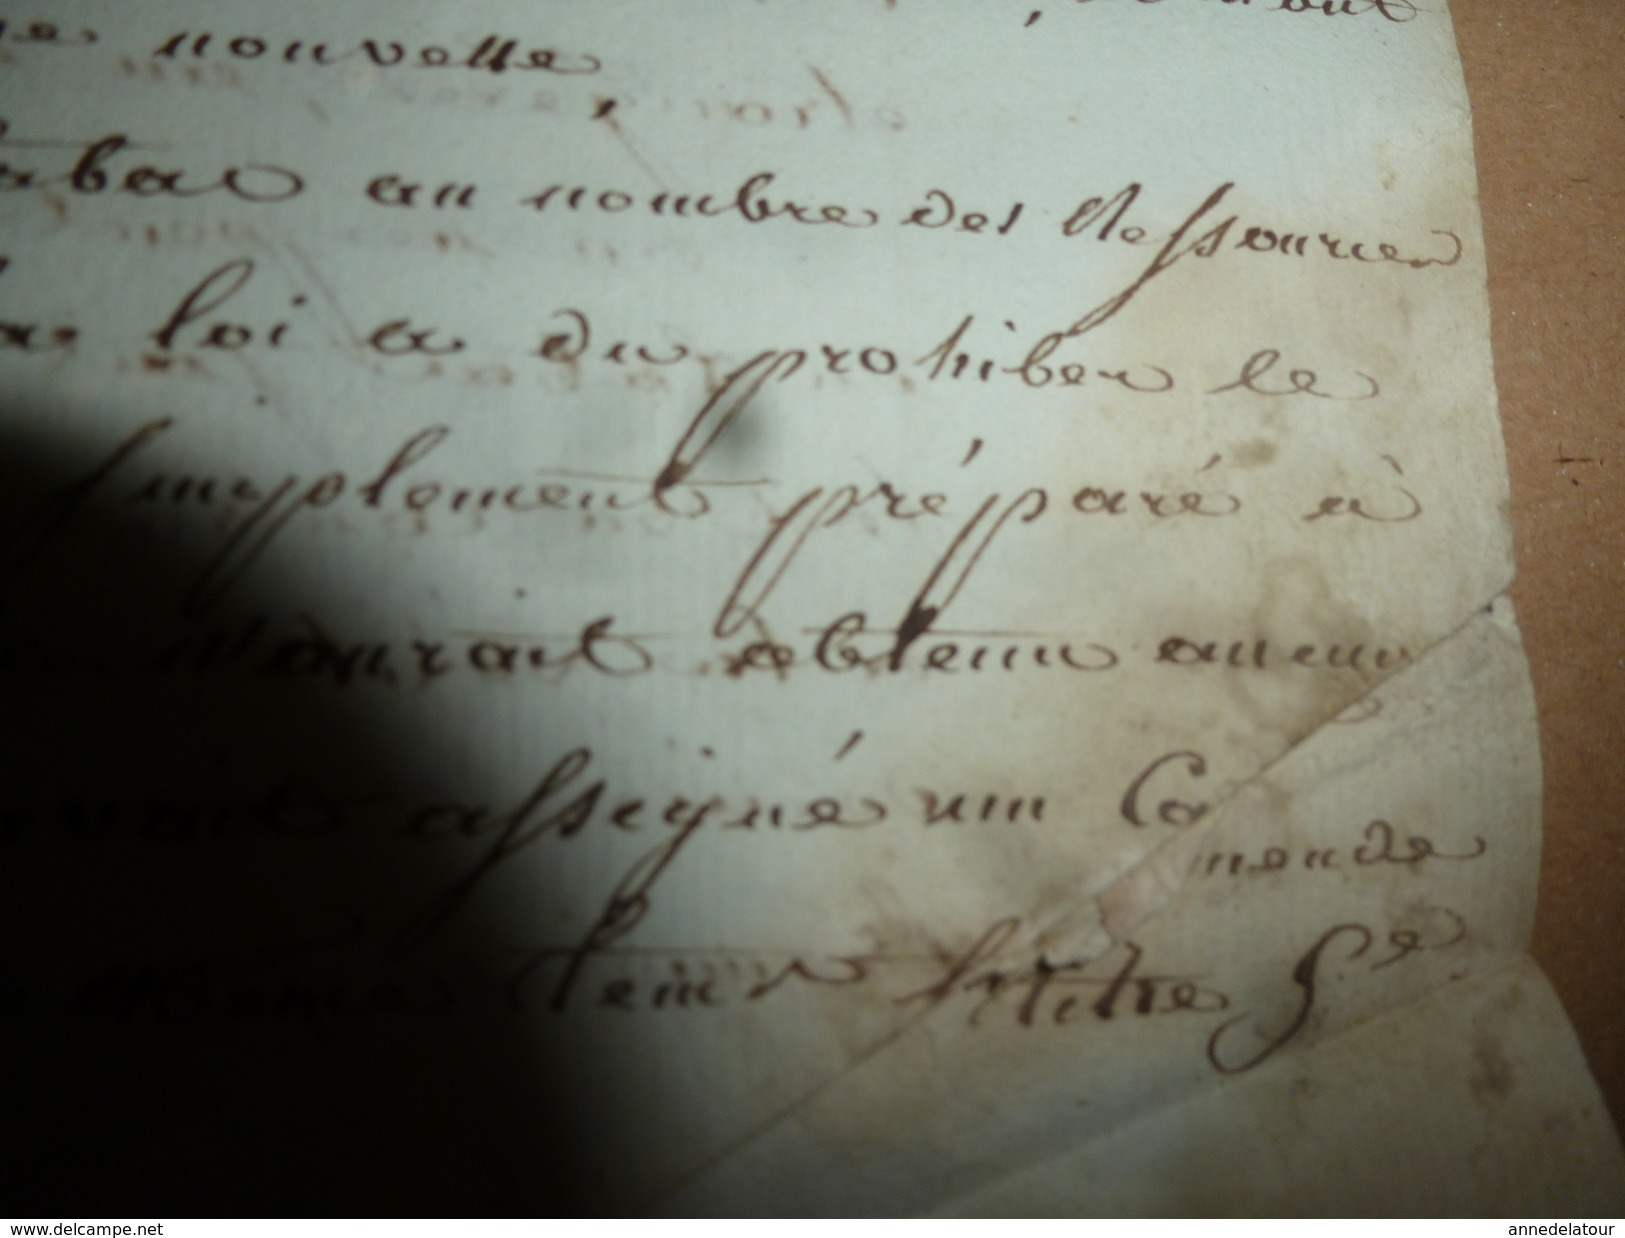 nouvelle,
tabac au nombre des Ressources
la loi a du prohiber le
simplement préparé à
n'aurait obtenu aucun
avait assigné une
amende
tems titre
www.delcampe.net
annedelatour